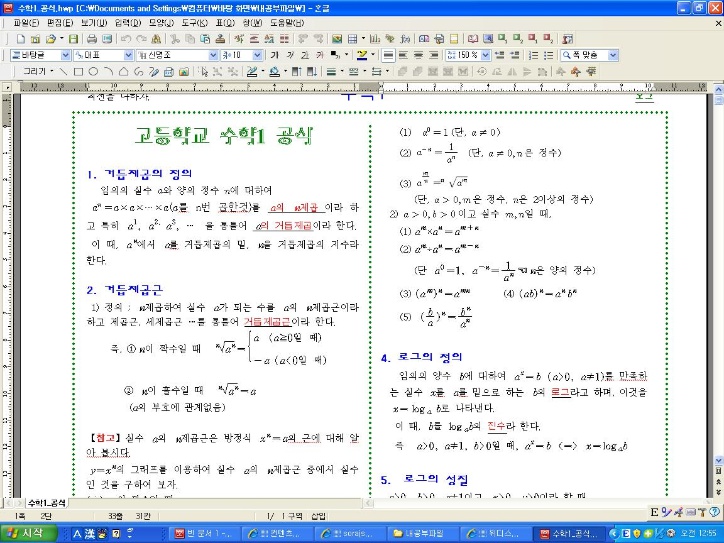 수학1_공식.hwp [C:\Documents and Settings\컴퓨터\바탕 화면\내공부파일\] - 한글
파일(F) 편집(E) 보기(U) 입력(D) 모양(J) 도구(K) 표(Q) 창(W) 도움말(H)
바탕글 대표 신명조 10 가 가 가 150 % 폭 맞춤
그리기
고등학교 수학1 공식
1. 거듭제곱의 정의
임의의 실수 a와 양의 정수 n에 대하여
aⁿ=a×a×⋯×a(a를 n번 곱한것)를 a의 n제곱 이라 하
고 특히 a¹, a², a³, ⋯ 을 통틀어 a의 거듭제곱이라 한다.
이 때, aⁿ에서 a를 거듭제곱의 밑, n을 거듭제곱의 지수라
한다.
2. 거듭제곱근
1) 정의 ; n제곱하여 실수 a가 되는 수를 a의 n제곱근이라
하고 제곱근, 세제곱근 ⋯를 통틀어 거듭제곱근이라 한다.
즉, ① n이 짝수일 때 ⁿ√aⁿ = { a (a≧0일 때)
-a (a<0일 때)
② n이 홀수일 때 ⁿ√aⁿ = a
(a의 부호에 관계없음)
【참고】 실수 a의 n제곱근은 방정식 xⁿ=a의 근에 대해 알
아 봅시다.
y=xⁿ의 그래프를 이용하여 실수 a의 n제곱근 중에서 실수
인 것을 구하여 보자.
(1) a⁰=1 (단, a≠0)
(2) a⁻ⁿ = 1/aⁿ (단, a≠0, n은 정수)
(3) a^(m/n) = ⁿ√aᵐ
(단, a>0, m은 정수, n은 2이상의 정수)
2) a>0, b>0 이고 실수 m, n일 때,
(1) aᵐ×aⁿ=aᵐ⁺ⁿ
(2) aᵐ÷aⁿ=aᵐ⁻ⁿ
(단 a⁰=1, a⁻ⁿ=1/aⁿ ☜ n은 양의 정수)
(3) (aᵐ)ⁿ=aᵐⁿ (4) (ab)ⁿ=aⁿbⁿ
(5) (b/a)ⁿ = bⁿ/aⁿ
4. 로그의 정의
임의의 양수 b에 대하여 aˣ=b (a>0, a≠1)를 만족하
는 실수 x를 a를 밑으로 하는 b의 로그라고 하며, 이것을
x=logₐb로 나타낸다.
이 때, b를 logₐb의 진수라 한다.
즉 a>0, a≠1, b>0일 때, aˣ=b <=> x=logₐb
5. 로그의 성질
수학1_공식
1쪽 2단 33줄 31칸 1/ 1 구역 삽입
시작 A 漢 빈 문서 1 - ... 컨텐츠... surajs... 내공부파일 위디스... 수학1_공식... 오전 12:55